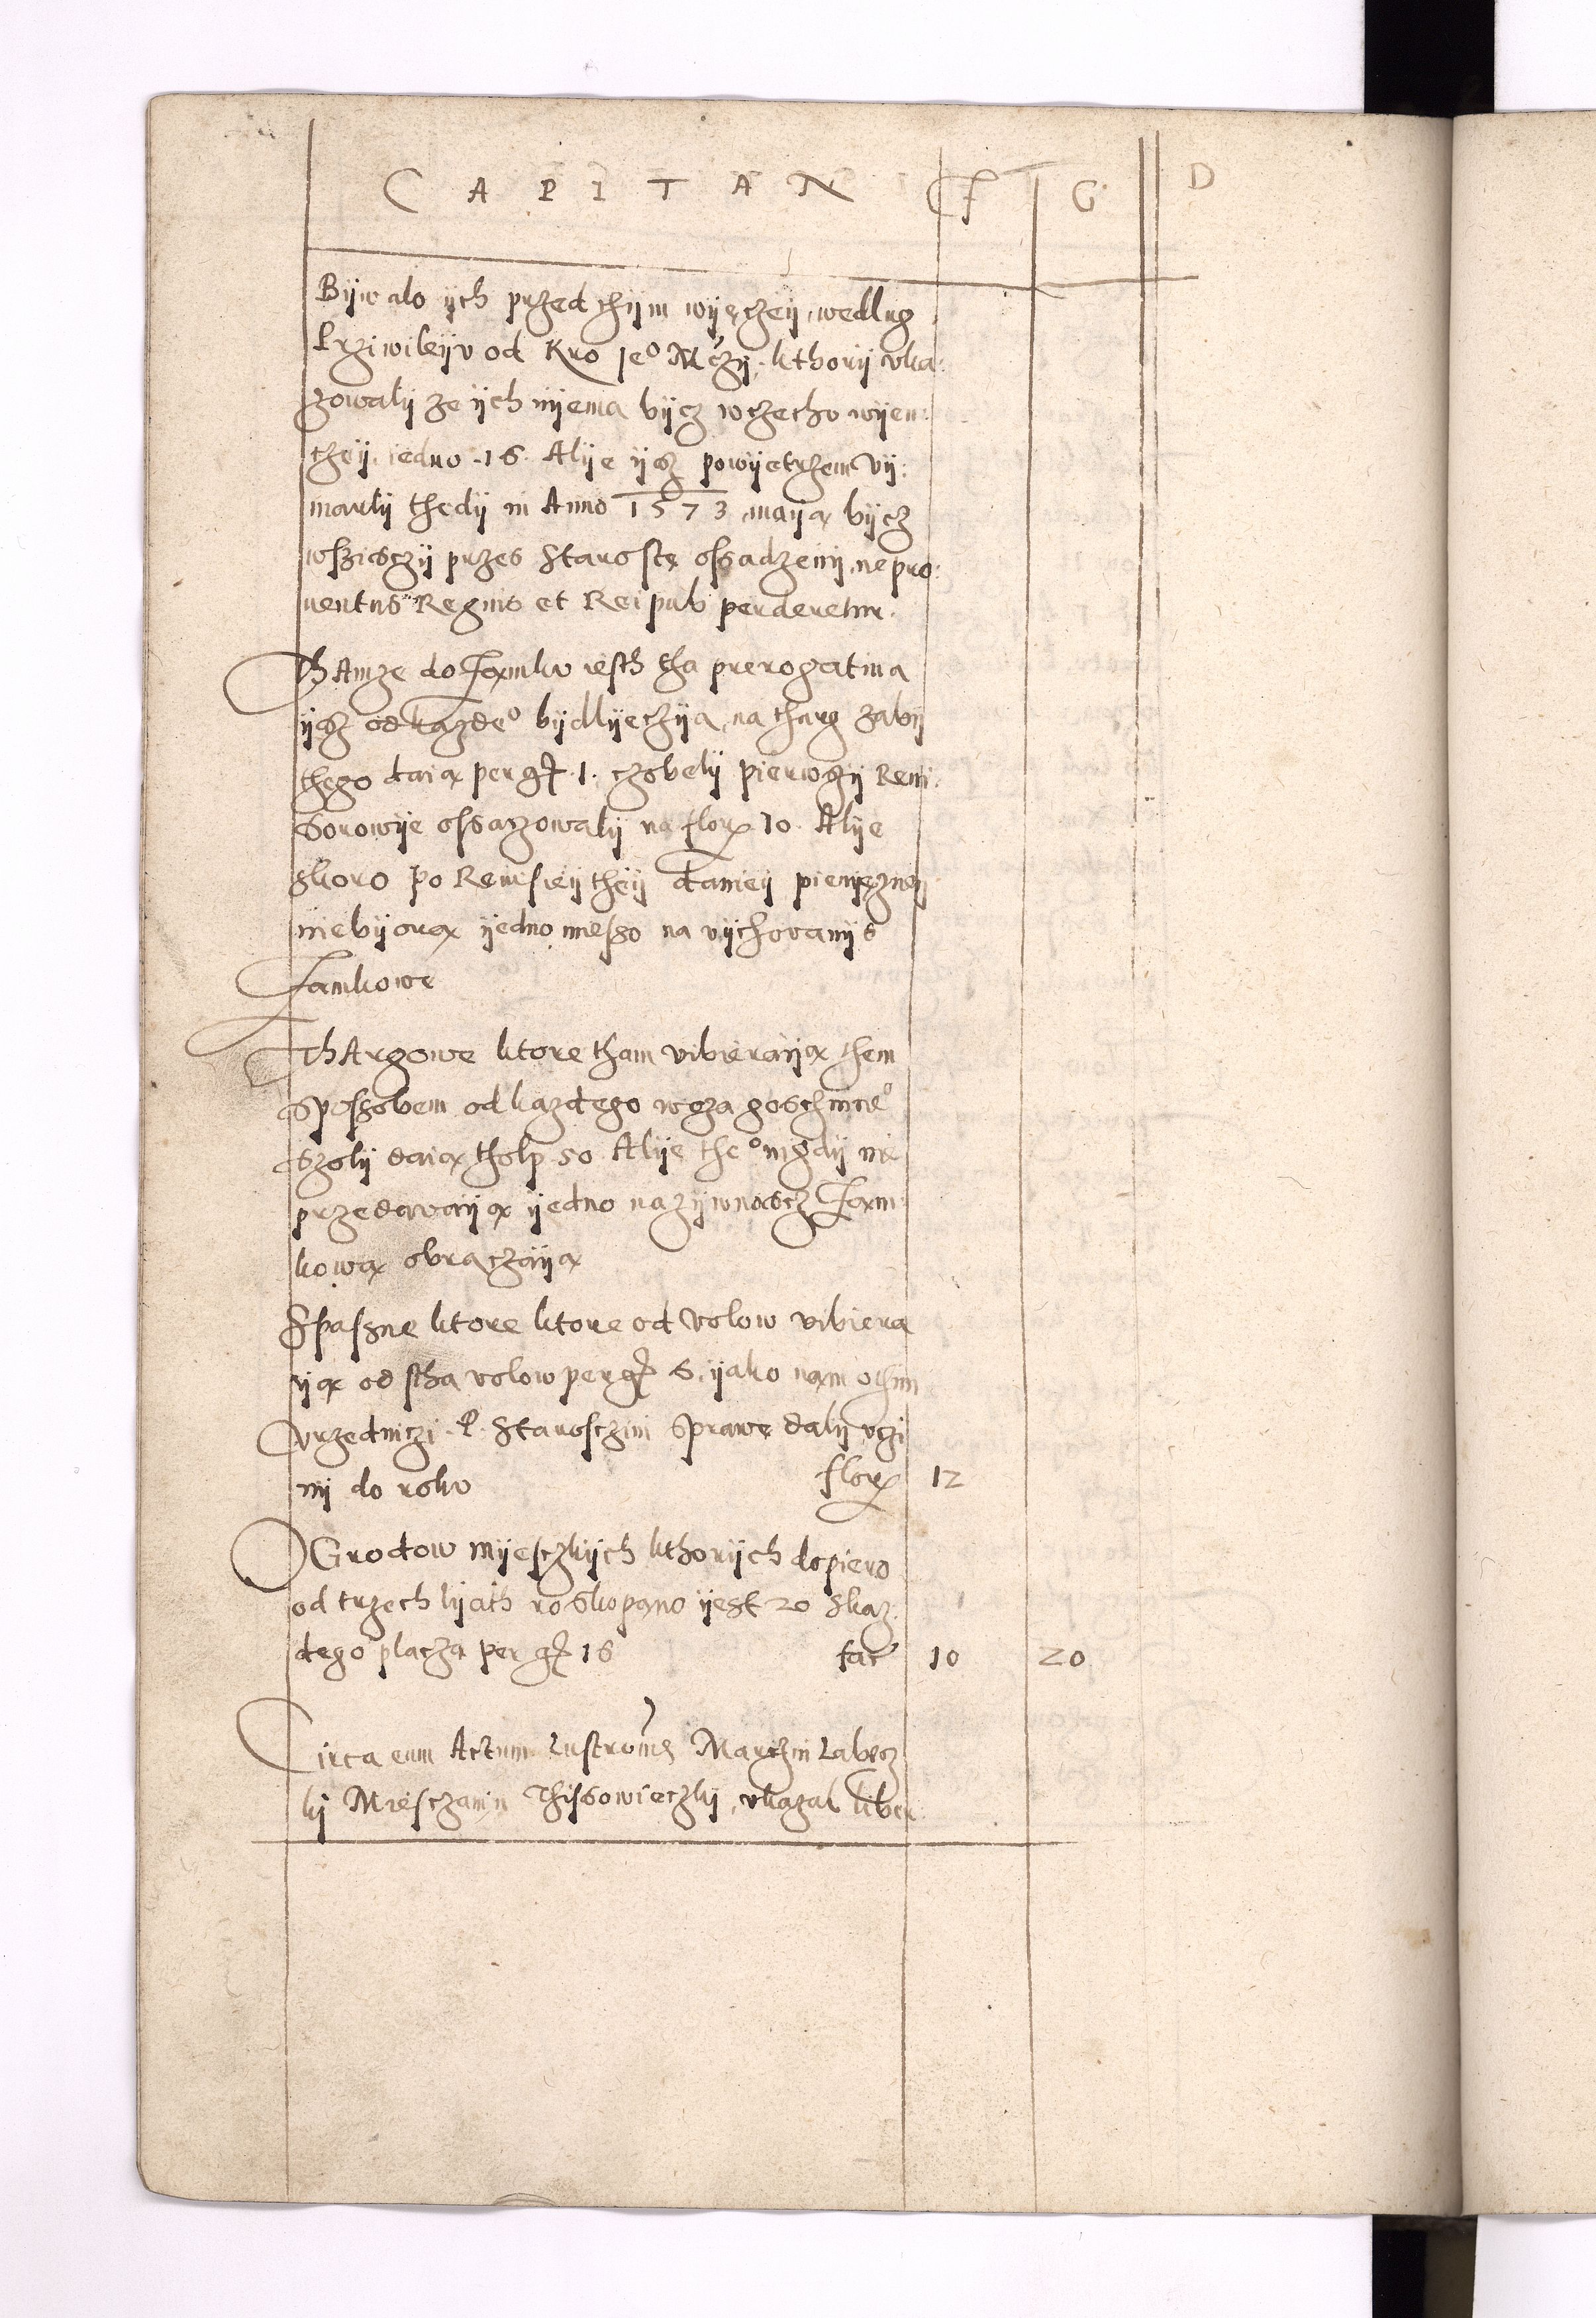 CAPITAN F G D
Bÿwalo ÿch przed thÿm wÿęczeÿ, wedlug
Prziwileÿv od Kro Je° Mczÿ, kthorÿ vka:
zowalÿ ze ÿch nÿema bÿcz wczecho wÿen:
czeÿ, iedno .16. Alÿe ÿsz powÿetrzem vÿ:
marlÿ thedÿ in Anno 1573 maÿą bÿcz
wszisczÿ przes Starostę ossadzenÿ, ne pro:
uentus Regius et Rei pub perderetur.
ThAmze do Zamku iesth tha prerogatiua
ÿsz od kazde° bÿdlÿeczÿa, na tharg zabÿ
thego daią per gr .1. czobelÿ pierwszÿ Reui:
sorowÿe ossaczowalÿ na flor 10. Alÿe
skoro po Reuisieÿ theÿ daniey pieniężneÿ
niebÿorą ÿedno miesso na vÿchovanÿe
Zamkowe
ThArgowe ktore tham vibieraÿą them
sposzobem od kazdego woza goschinne°
szolÿ daią tholp 50 Alÿe the° nigdÿ nie
przedawaÿą ÿedno na zÿwnoscz Zam:
kową obraczaÿą
Spasne ktore ktore od volow vibiera
ÿą od stha volow per gr 6. ÿako nam othim
vrzedniczi P. Starosczini sprawę dalÿ, vczi
nÿ do roku flor 12
OGrodow mÿesczkÿch kthorÿch dopiero
od trzech lÿath roskopano ÿest 20 skaz:
dego placza per gr 16 fac 10 20
Circa eum Actum Lustronis Marczin Labecz
kÿ Miesczanin Thissowieczkÿ, vkazal liber